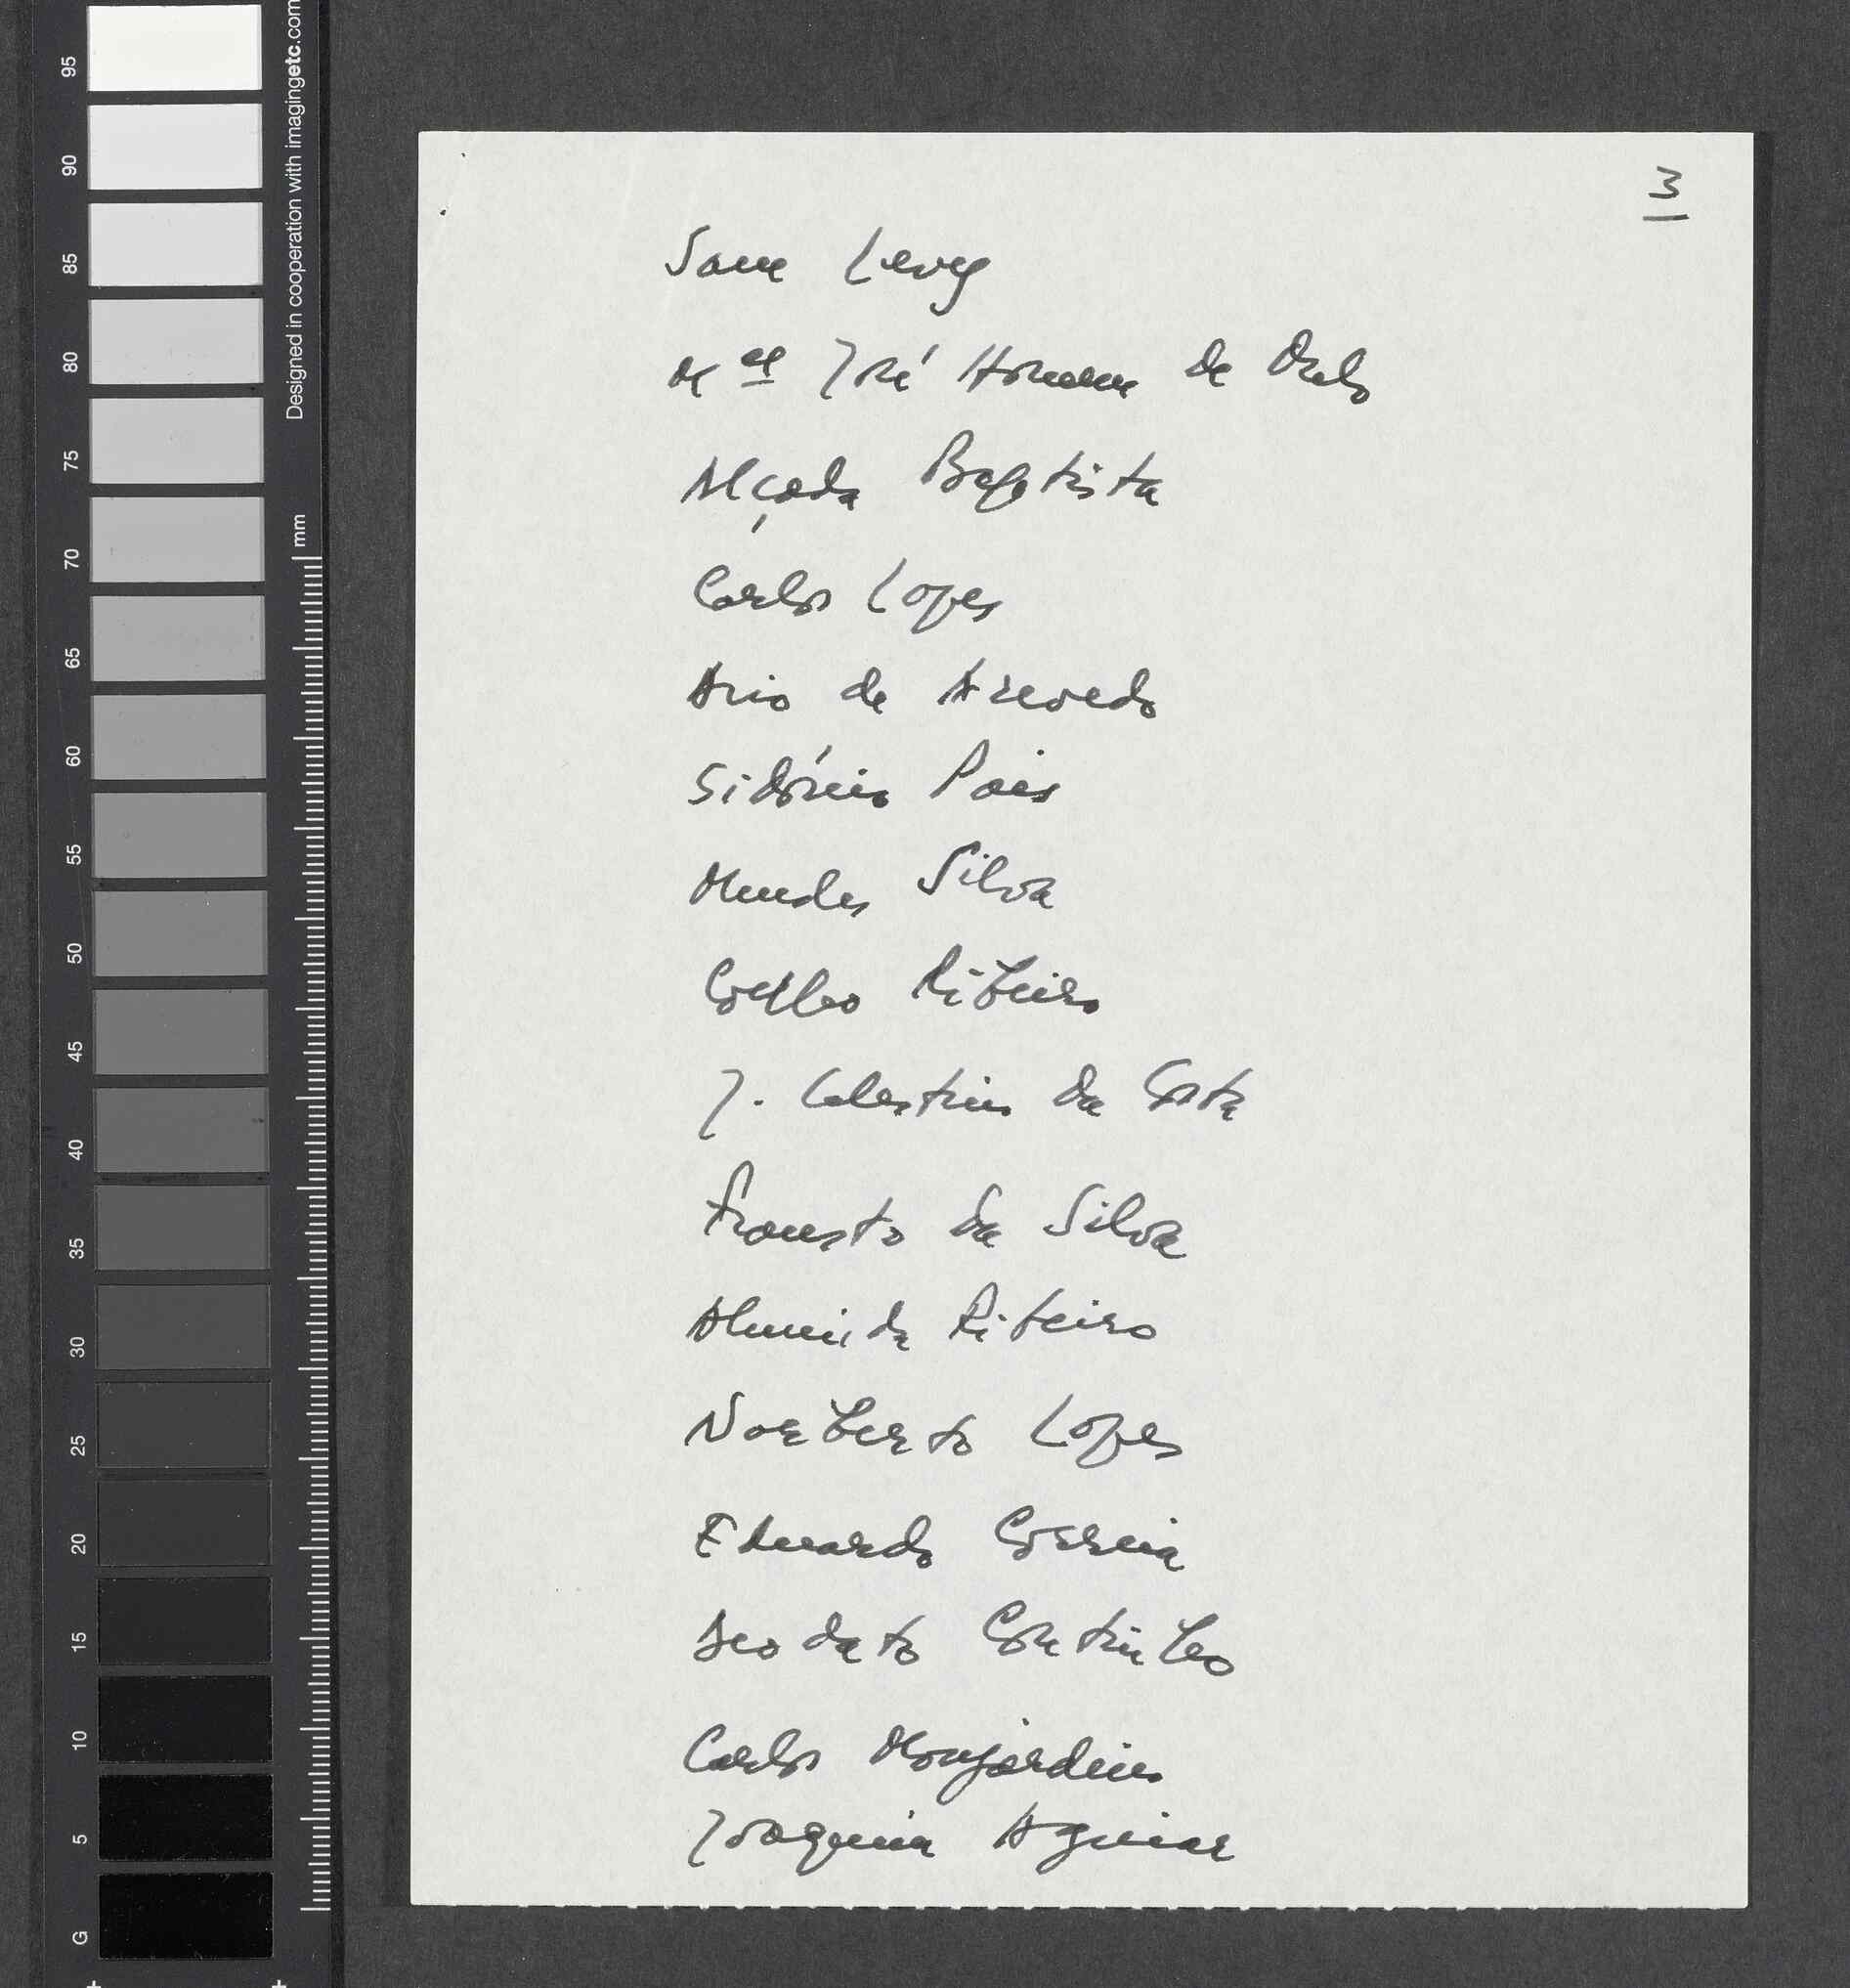 3
Sam Levy
Mel José Homem de Melo
Alçada Baptista
Carlos Lopes
Ário de Azevedo
Sidónio Pais
Mendes Silva
Coelho Ribeiro
J. Celestino da Costa
Frausto da Silva
Almeida Ribeiro
Norberto Lopes
Eduardo Correia
Deodato Coutinho
Carlos Monjardino
Joaquim Aguiar
95
90
85
80
75
70
65
60
55
50
45
40
35
30
25
20
15
10
5
G
Designed in cooperation with imagingetc.com
mm